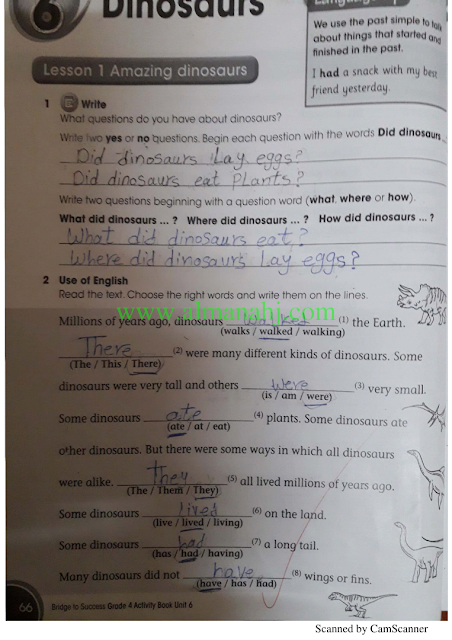 6 Dinosaurs
We use the past simple to talk
about things that started and
finished in the past.
I had a snack with my best
friend yesterday.
Lesson 1 Amazing dinosaurs
1 Write
What questions do you have about dinosaurs?
Write two yes or no questions. Begin each question with the words Did dinosaurs ...
Did dinosaurs lay eggs?
Did dinosaurs eat plants?
Write two questions beginning with a question word (what, where or how).
What did dinosaurs ... ? Where did dinosaurs ... ? How did dinosaurs ... ?
What did dinosaurs eat?
Where did dinosaurs lay eggs?
2 Use of English
Read the text. Choose the right words and write them on the lines.
www.almanahj.com
Millions of years ago, dinosaurs walked (1) the Earth.
(walks / walked / walking)
There (2) were many different kinds of dinosaurs. Some
(The / This / There)
dinosaurs were very tall and others were (3) very small.
(is / am / were)
Some dinosaurs ate (4) plants. Some dinosaurs ate
(ate / at / eat)
other dinosaurs. But there were some ways in which all dinosaurs
were alike. They (5) all lived millions of years ago.
(The / Them / They)
Some dinosaurs lived (6) on the land.
(live / lived / living)
Some dinosaurs had (7) a long tail.
(has / had / having)
Many dinosaurs did not have (8) wings or fins.
(have / has / had)
66 Bridge to Success Grade 4 Activity Book Unit 6
Scanned by CamScanner